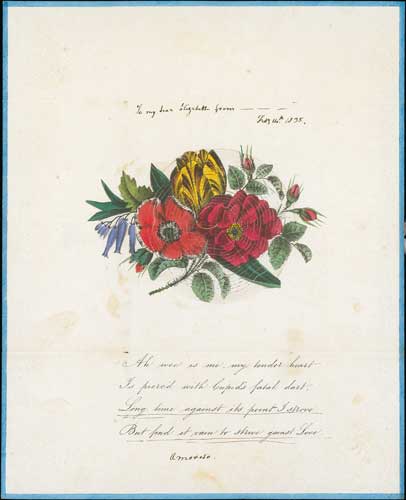 To my dear Elizabeth from — — —
Feby 14th 1835.
Ah woe is me my tender heart
Is pierced with Cupids fatal dart
Long time against its point I strove
But find it vain to strive gainst Love
Amoroso.